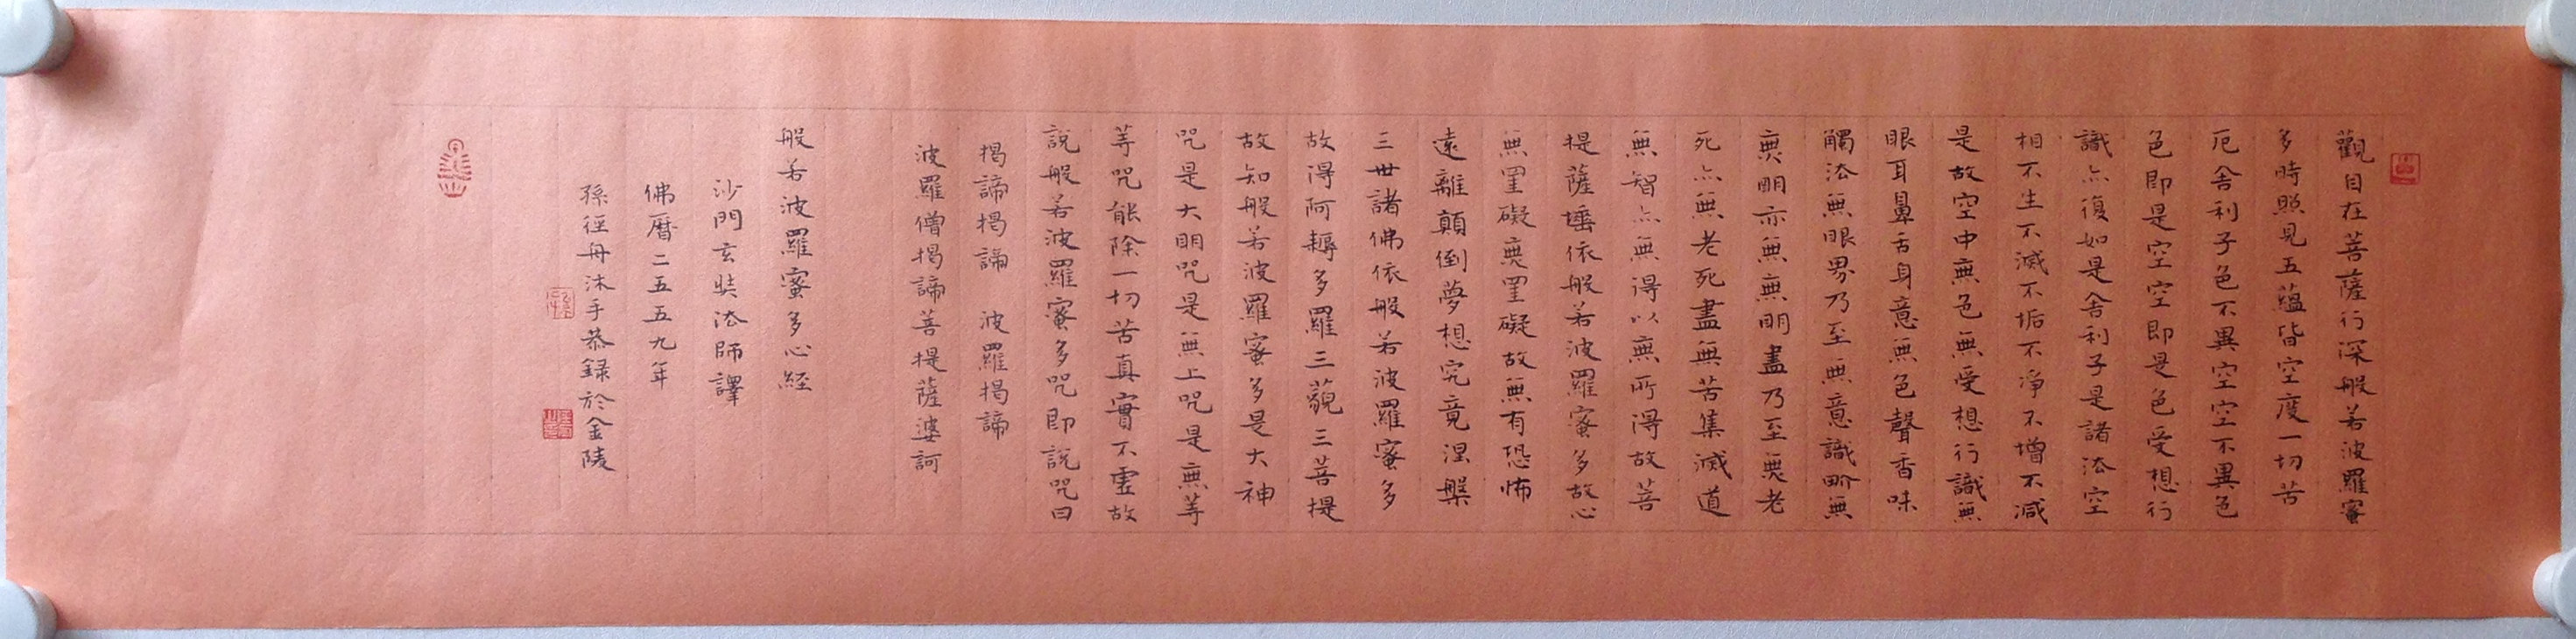 觀自在菩薩行深般若波羅蜜
多時照見五蘊皆空度一切苦
厄舍利子色不異空空不異色
色即是空空即是色受想行
識亦復如是舍利子是諸法空
相不生不滅不垢不淨不增不減
是故空中無色無受想行識無
眼耳鼻舌身意無色聲香味
觸法無眼界乃至無意識界無
無明亦無無明盡乃至無老
死亦無老死盡無苦集滅道
無智亦無得以無所得故菩
提薩埵依般若波羅蜜多故心
無罣礙無罣礙故無有恐怖
遠離顛倒夢想究竟涅槃
三世諸佛依般若波羅蜜多
故得阿耨多羅三藐三菩提
故知般若波羅蜜多是大神
咒是大明咒是無上咒是無等
等咒能除一切苦真實不虛故
說般若波羅蜜多咒即說咒曰
揭諦揭諦 波羅揭諦
波羅僧揭諦菩提薩婆訶
般若波羅蜜多心経
沙門玄奘法師譯
佛曆二五五九年
孫徑舟沐手恭録於金陵